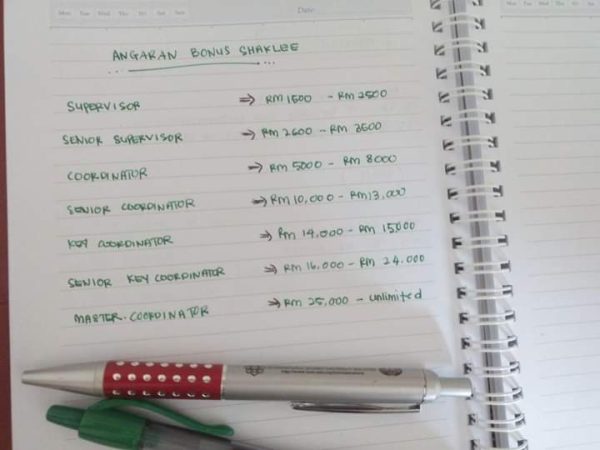 Mon Tue Wed Thu Fri Sat Sun Date
ANGARAN BONUS SHAKLEE
SUPERVISOR ⇒ RM 1500 - RM 2500
SENIOR SUPERVISOR ⇒ RM 2600 - RM 3600
COORDINATOR ⇒ RM 5000 - RM 8000
SENIOR COORDINATOR ⇒ RM 10,000 - RM 13,000
KEY COORDINATOR ⇒ RM 14,000 - RM 15000
SENIOR KEY COORDINATOR ⇒ RM 16,000 - RM 24.000
MASTER COORDINATOR ⇒ RM 25,000 - unlimited